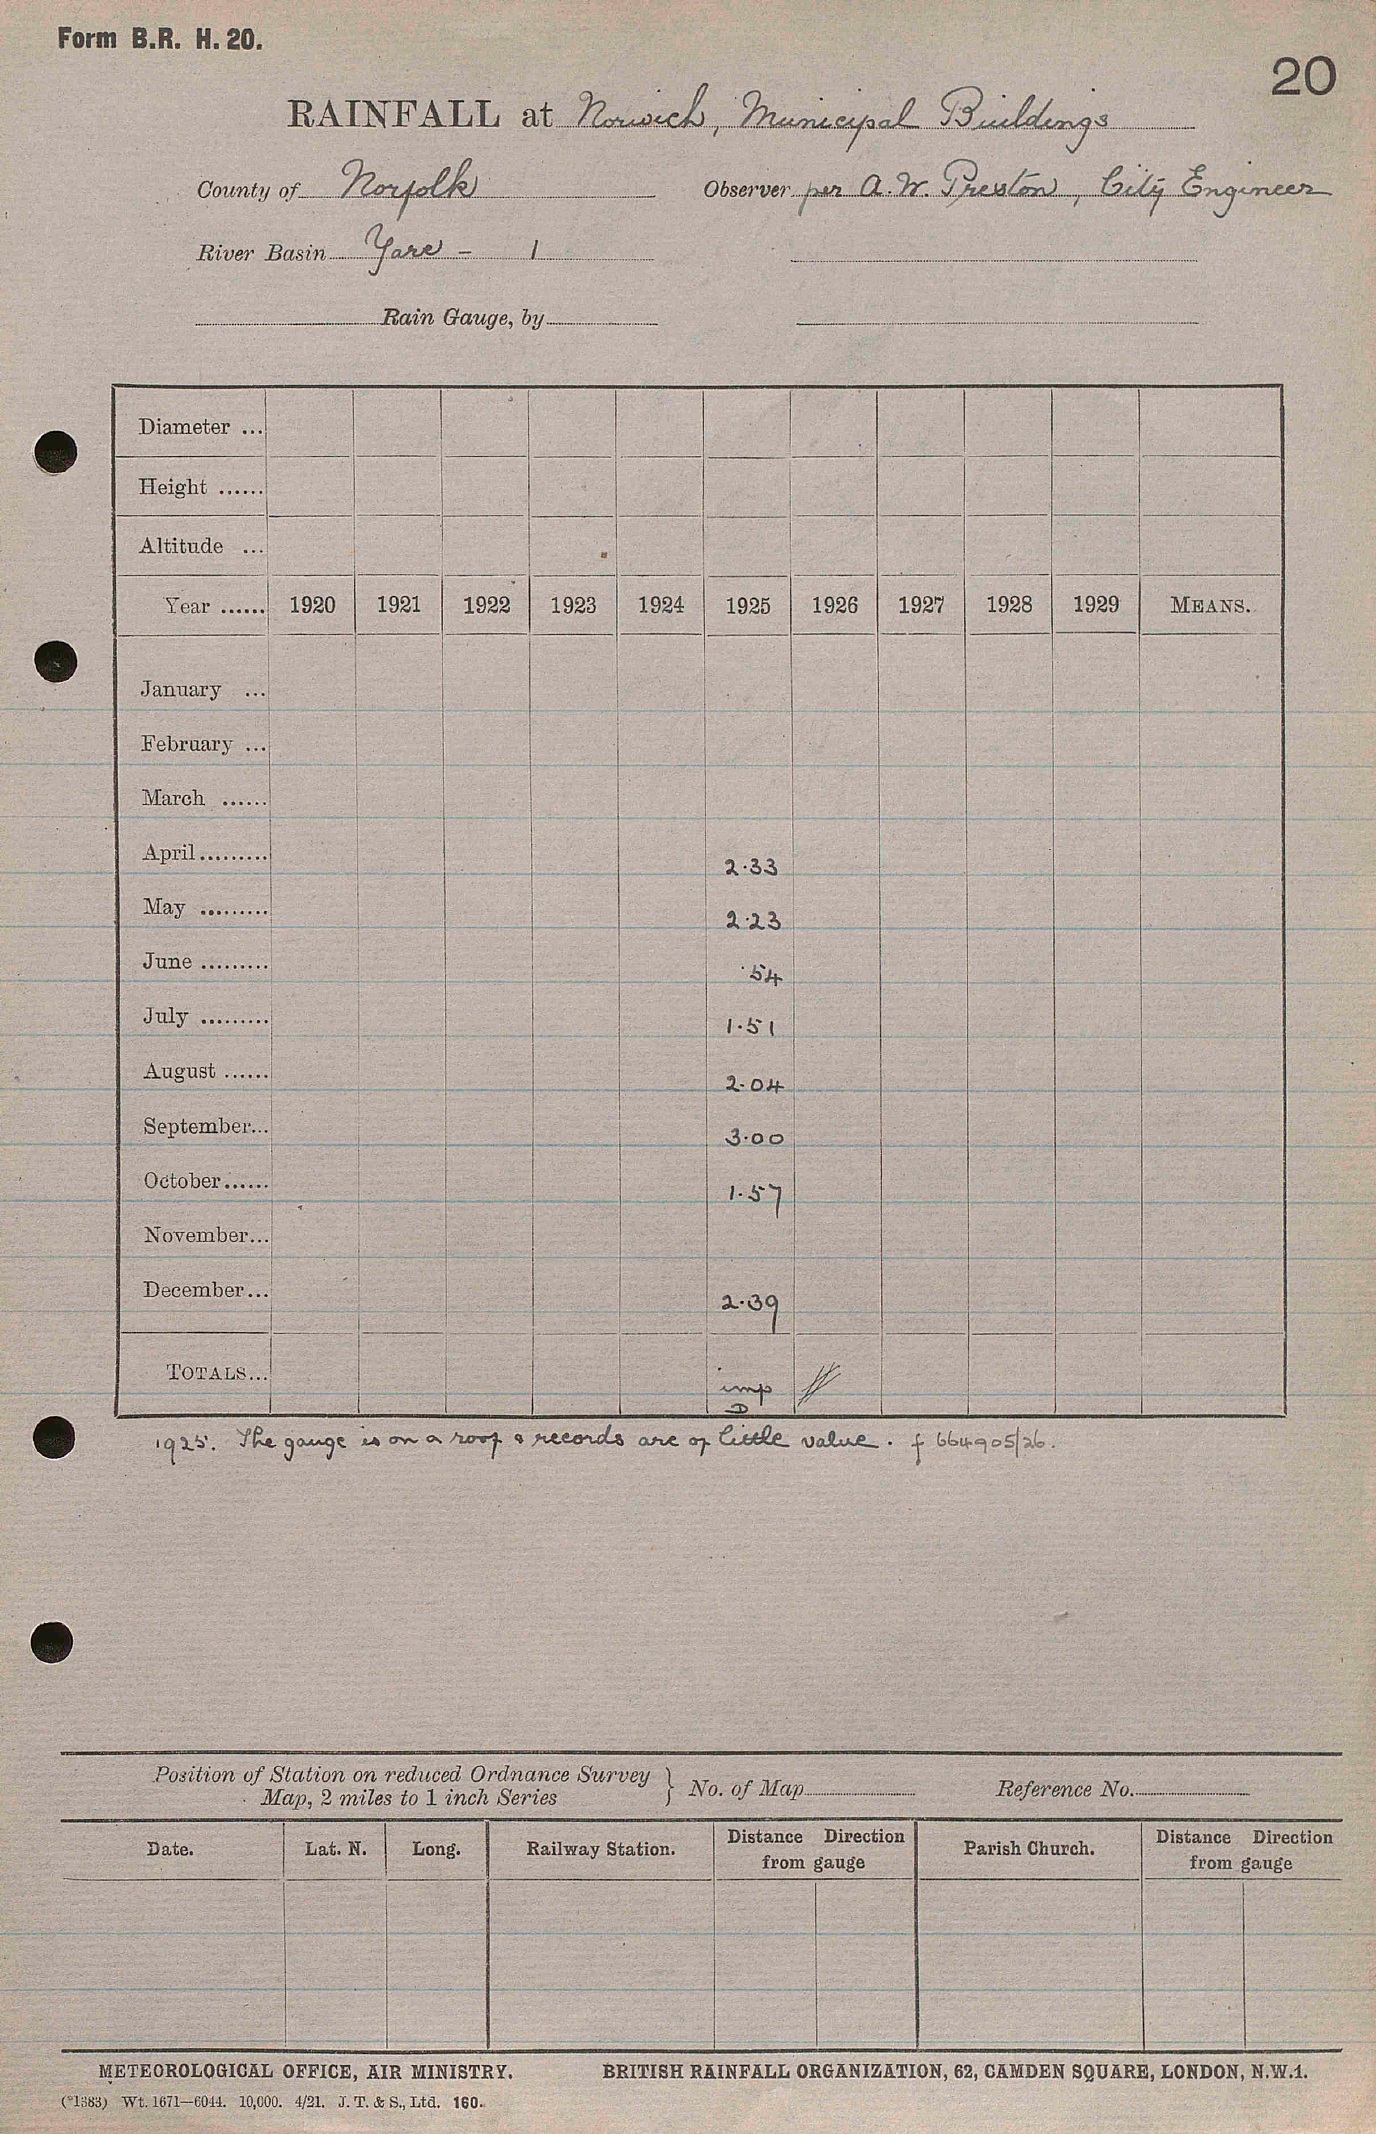 Form B.R. H. 20.
20
RAINFALL at Norwich, Municipal Buildings
County of Norfolk Observer per A. W. Preston, City Engineer
River Basin Yare - 1
Rain Gauge, by
Diameter ...
Height ......
Altitude ...
Year ...... 1920 1921 1922 1923 1924 1925 1926 1927 1928 1929 MEANS.
January ...
February ...
March ......
April ......... 2.33
May ......... 2.23
June ......... .54
July ......... 1.51
August ...... 2.04
September... 3.00
October ...... 1.57
November...
December... 2.39
TOTALS... imp
D
1925. The gauge is on a roof & records are of little value. f 664905/26.
Position of Station on reduced Ordnance Survey
Map, 2 miles to 1 inch Series } No. of Map Reference No.
Date. Lat. N. Long. Railway Station. Distance Direction from gauge Parish Church. Distance Direction from gauge
METEOROLOGICAL OFFICE, AIR MINISTRY. BRITISH RAINFALL ORGANIZATION, 62, CAMDEN SQUARE, LONDON, N.W.1.
(*1383) Wt. 1671—6044. 10,000. 4/21. J. T. & S., Ltd. 160.